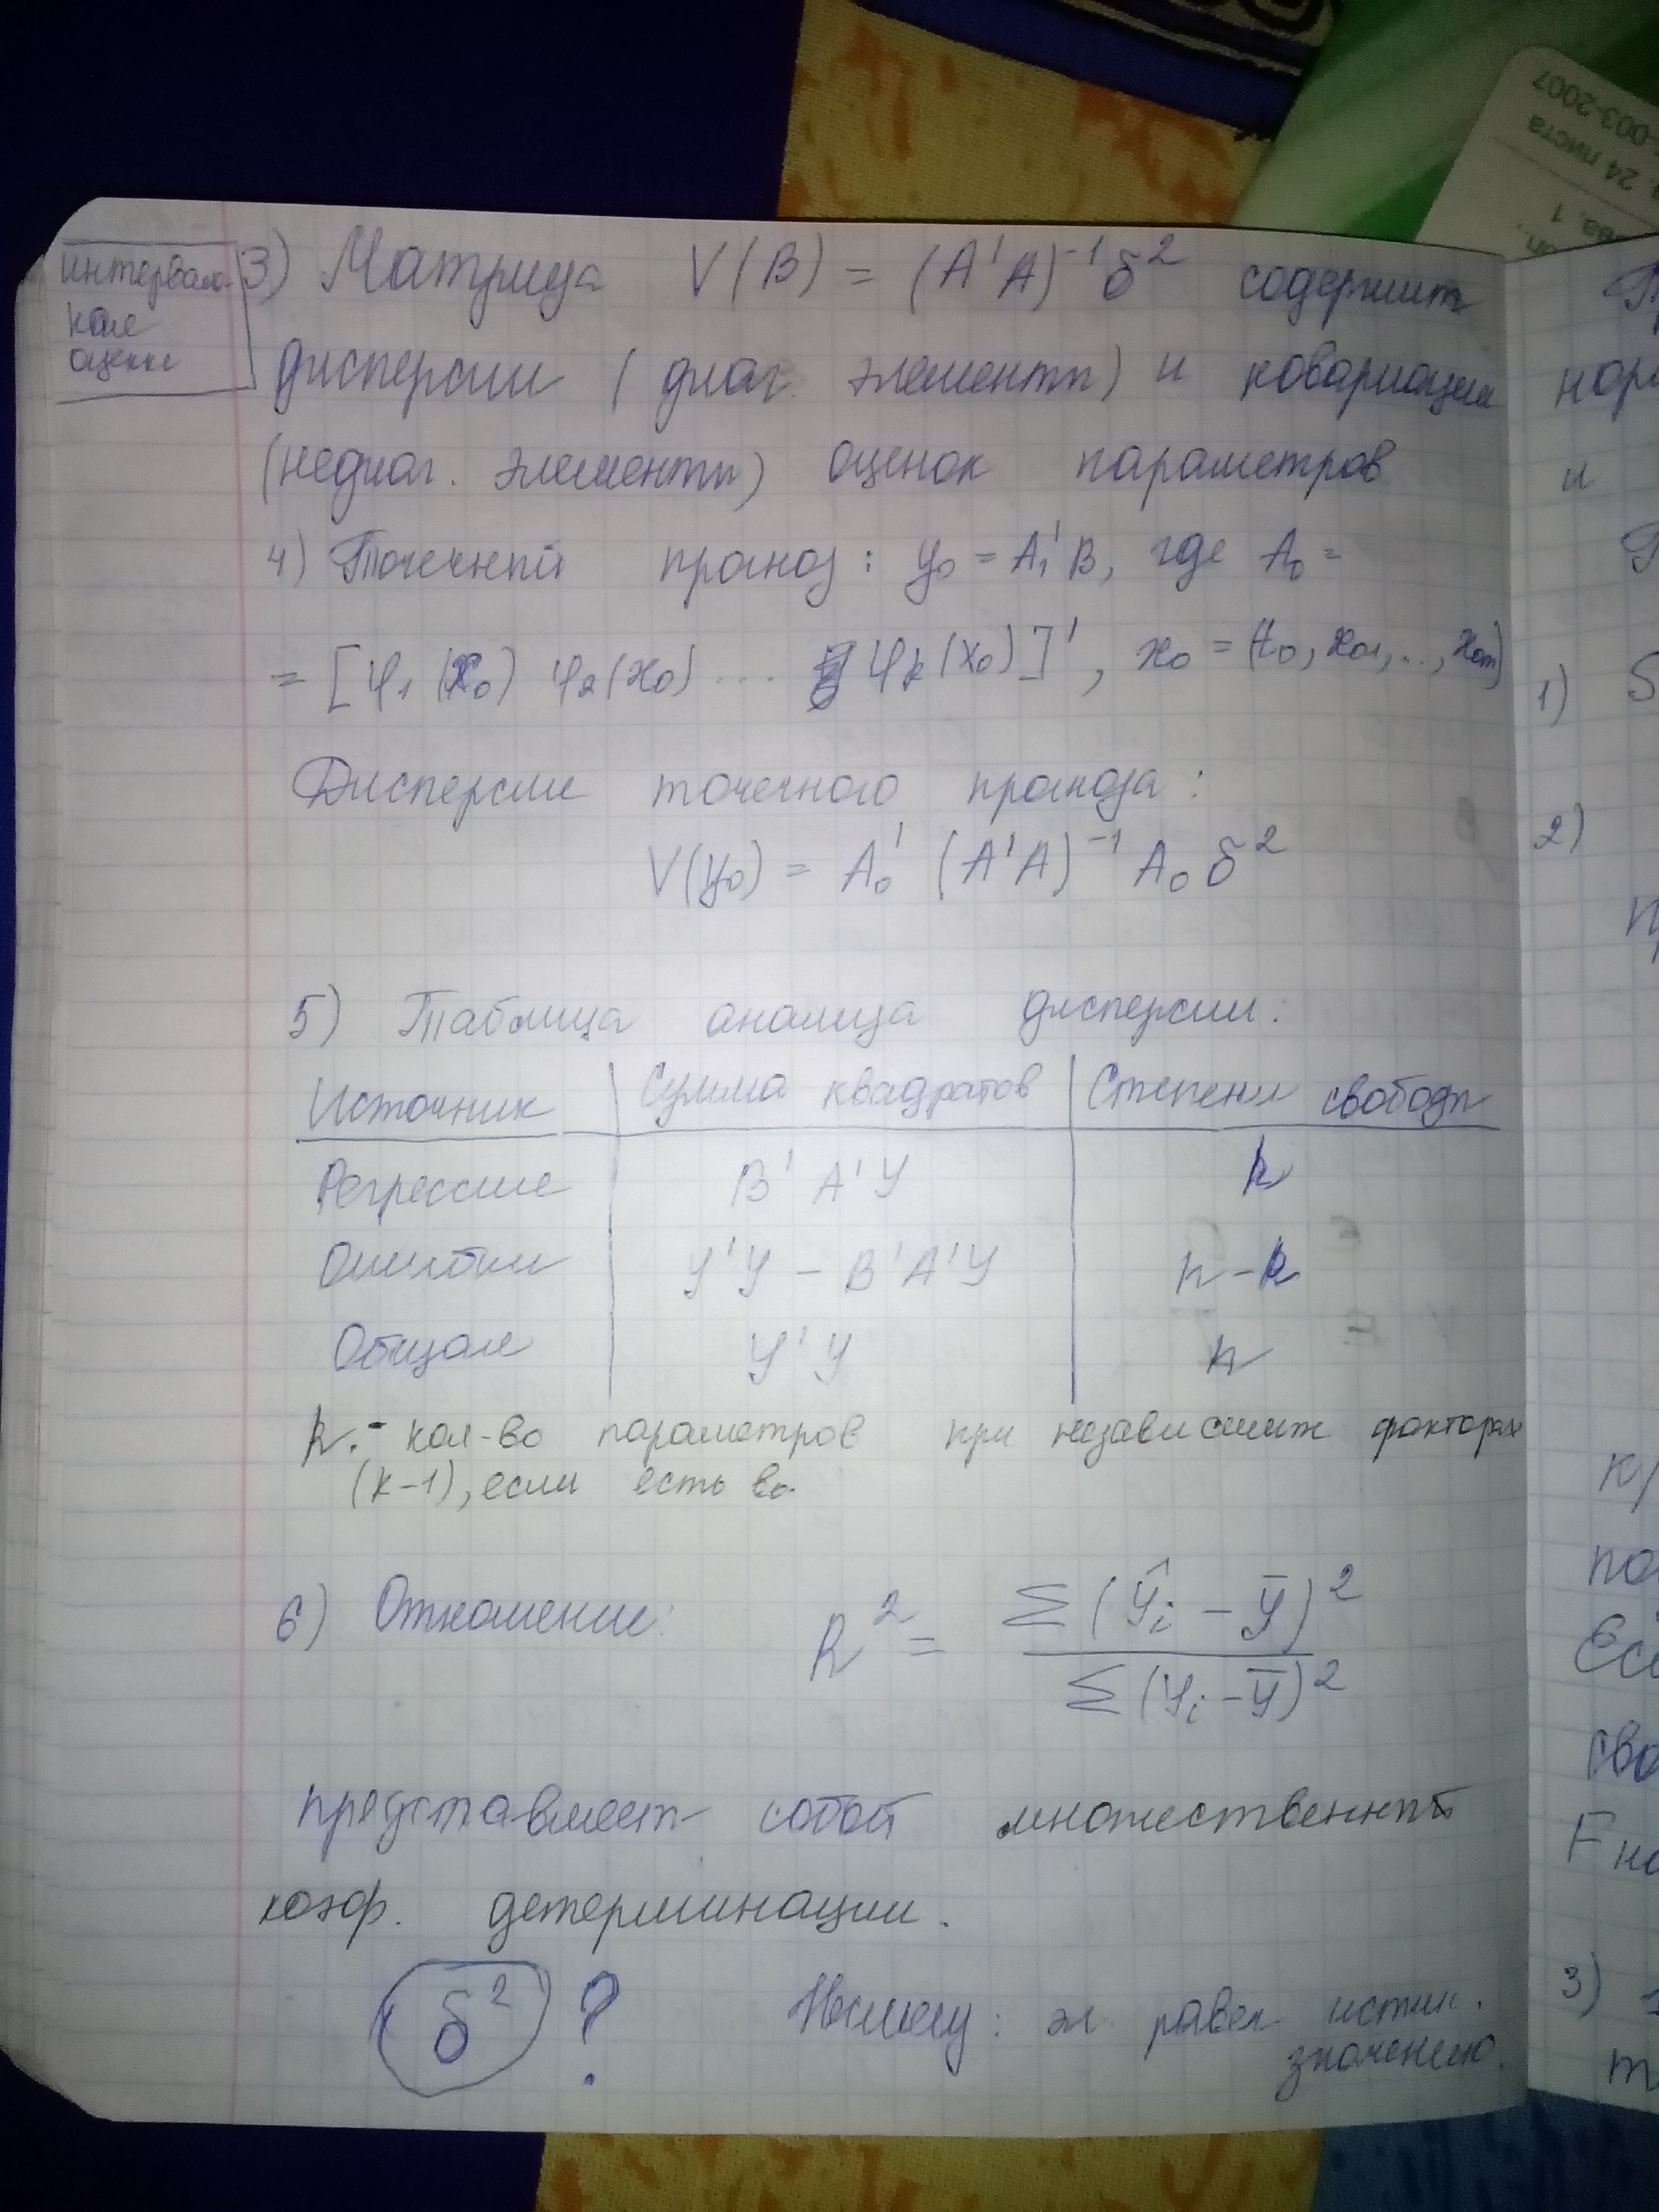 интерваль-
ная
оценка
3) Матрица V(B) = (A'A)⁻¹ б² содержит
дисперсии (диаг. элементы) и ковариации
(недиаг. элементы) оценок параметров
4) Точечный прогноз: y₀ = A₁'B, где A₀ =
= [φ₁(x₀) φ₂(x₀) ... φₖ(x₀)]', x₀ = (t₀, x₀₁, .., x₀ₘ)
Дисперсия точечного прогноза:
V(y₀) = A₀' (A'A)⁻¹ A₀ б²
5) Таблица анализа дисперсии:
Источник | Сумма квадратов | Степени свободы
Регрессия | B'A'Y | k
Ошибки | Y'Y – B'A'Y | n-k
Общая | Y'Y | n
k - кол-во параметров при независимых факторах
(k-1), если есть во
6) Отношение: R² = Σ(ŷᵢ – ȳ)² / Σ(yᵢ – ȳ)²
представляет собой множественный
коэф. детерминации.
б² ? равен истин.
значению.
1)
2)
3)
24 листа
-003-2007